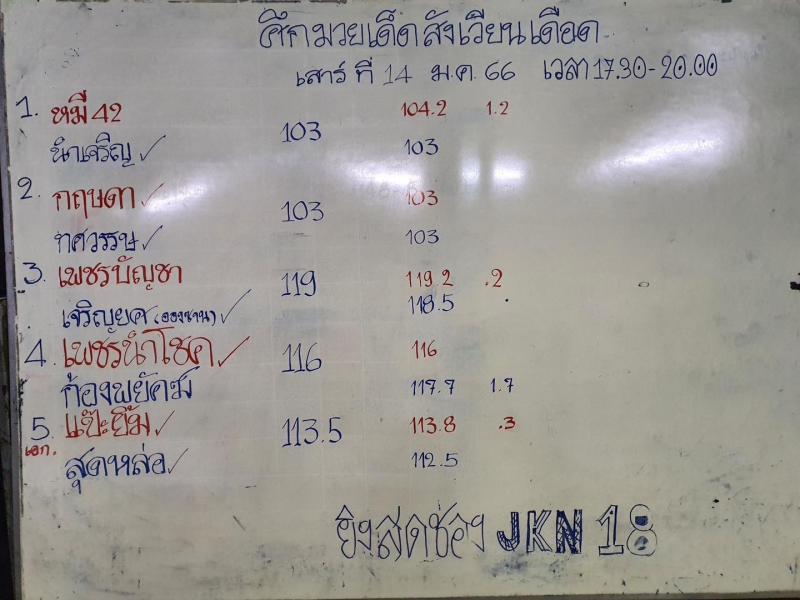 ศึกมวยเด็ดสังเวียนเดือด
เสาร์ ที่ 14 ม.ค. 66 เวลา 17.30-20.00
1. หมี 42 104.2 1.2
103
นำเจริญ ✓ 103
2. กฤษดา ✓ 103
103
ทศวรรษ ✓ 103
3. เพชรบัญชา 119.2 .2
119
เจริญยศ (องชาน) ✓ 118.5
4. เพชรนำโชค ✓ 116
116
ก้องพยัคฆ์ 117.7 1.7
5. แป๊ะยิ้ม ✓ 113.8 .3
เอก. 113.5
สุดหล่อ ✓ 112.5
ยิงสดช่อง JKN 18